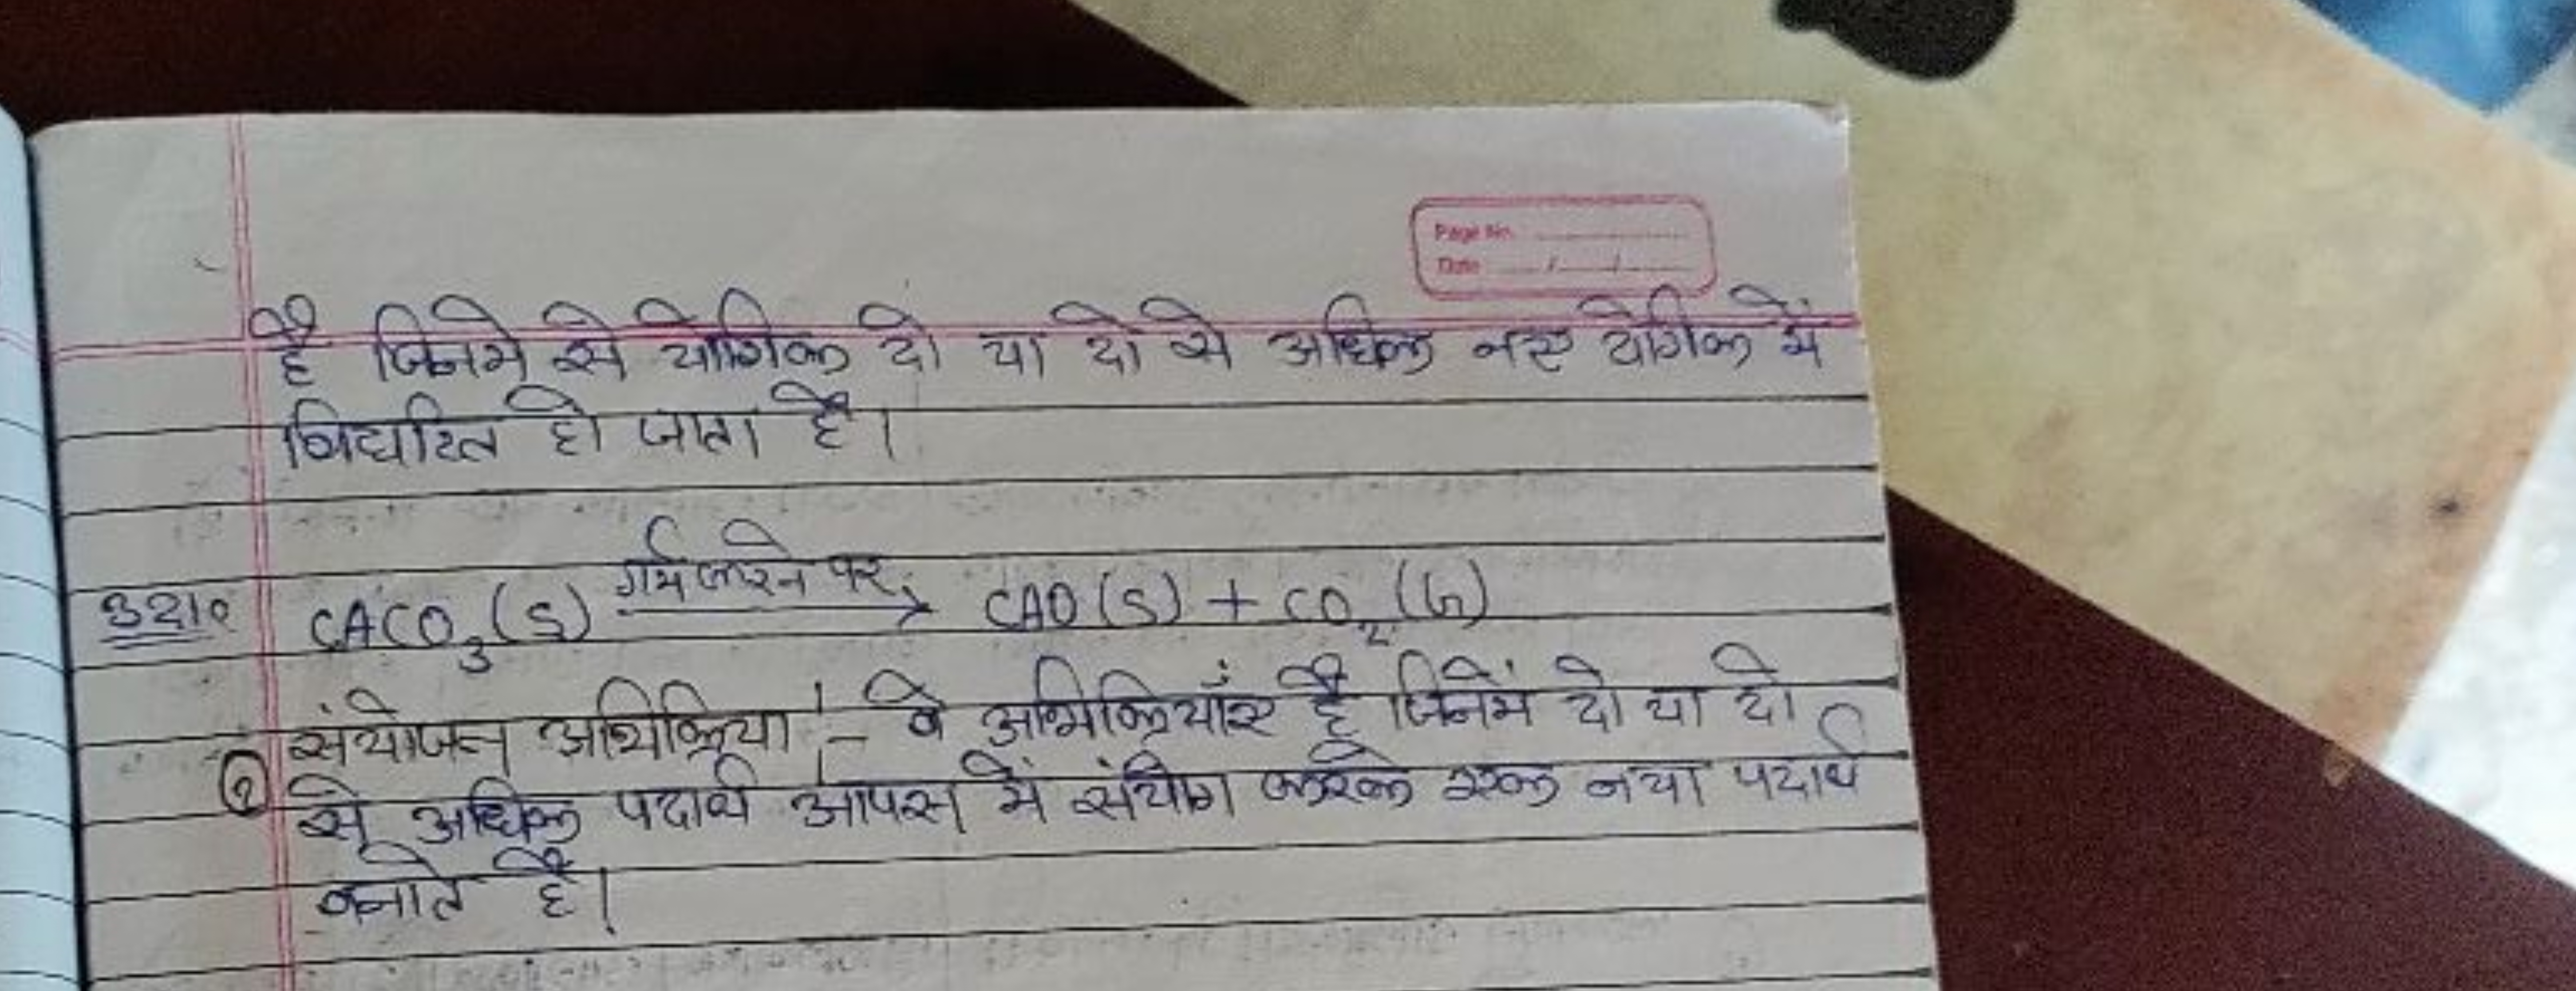 Page No.
Date / /
है जिनमे से योगिक दो या दो से अधिक नए योगिक में
विघटित हो जाता है।
उदा० CACO₃(S) गर्म करने पर → CAO(S) + CO₂(G)
संयोजन अभिक्रिया :- वे अभिक्रियाँए है जिनमें दो या दो
② से अधिक पदार्थ आपस में संयोग करके एक नया पदार्थ
बनाते है।